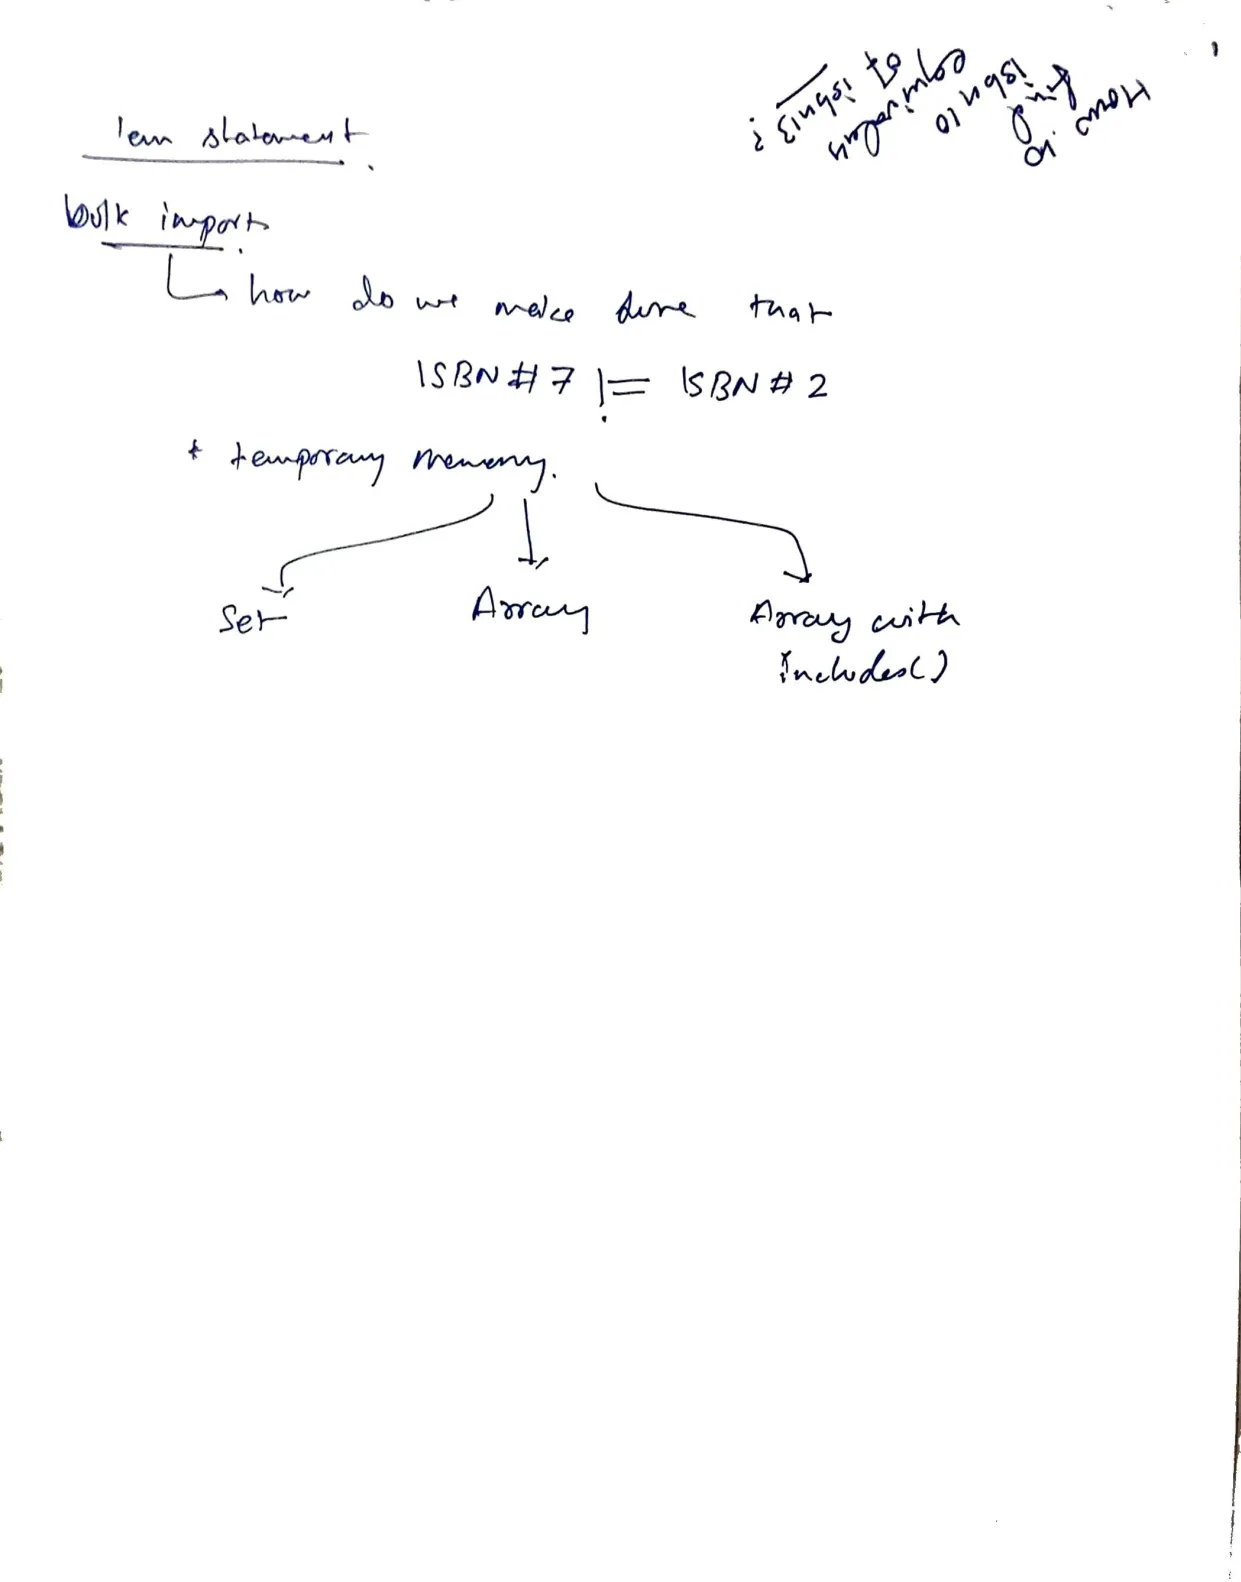 lem statement
bulk import
how do we make sure that
ISBN # 7 != ISBN # 2
* temporary memory.
Set
Array
Array with
includes()
How to
find
isbn 10
equivalent
of isbn13 ?